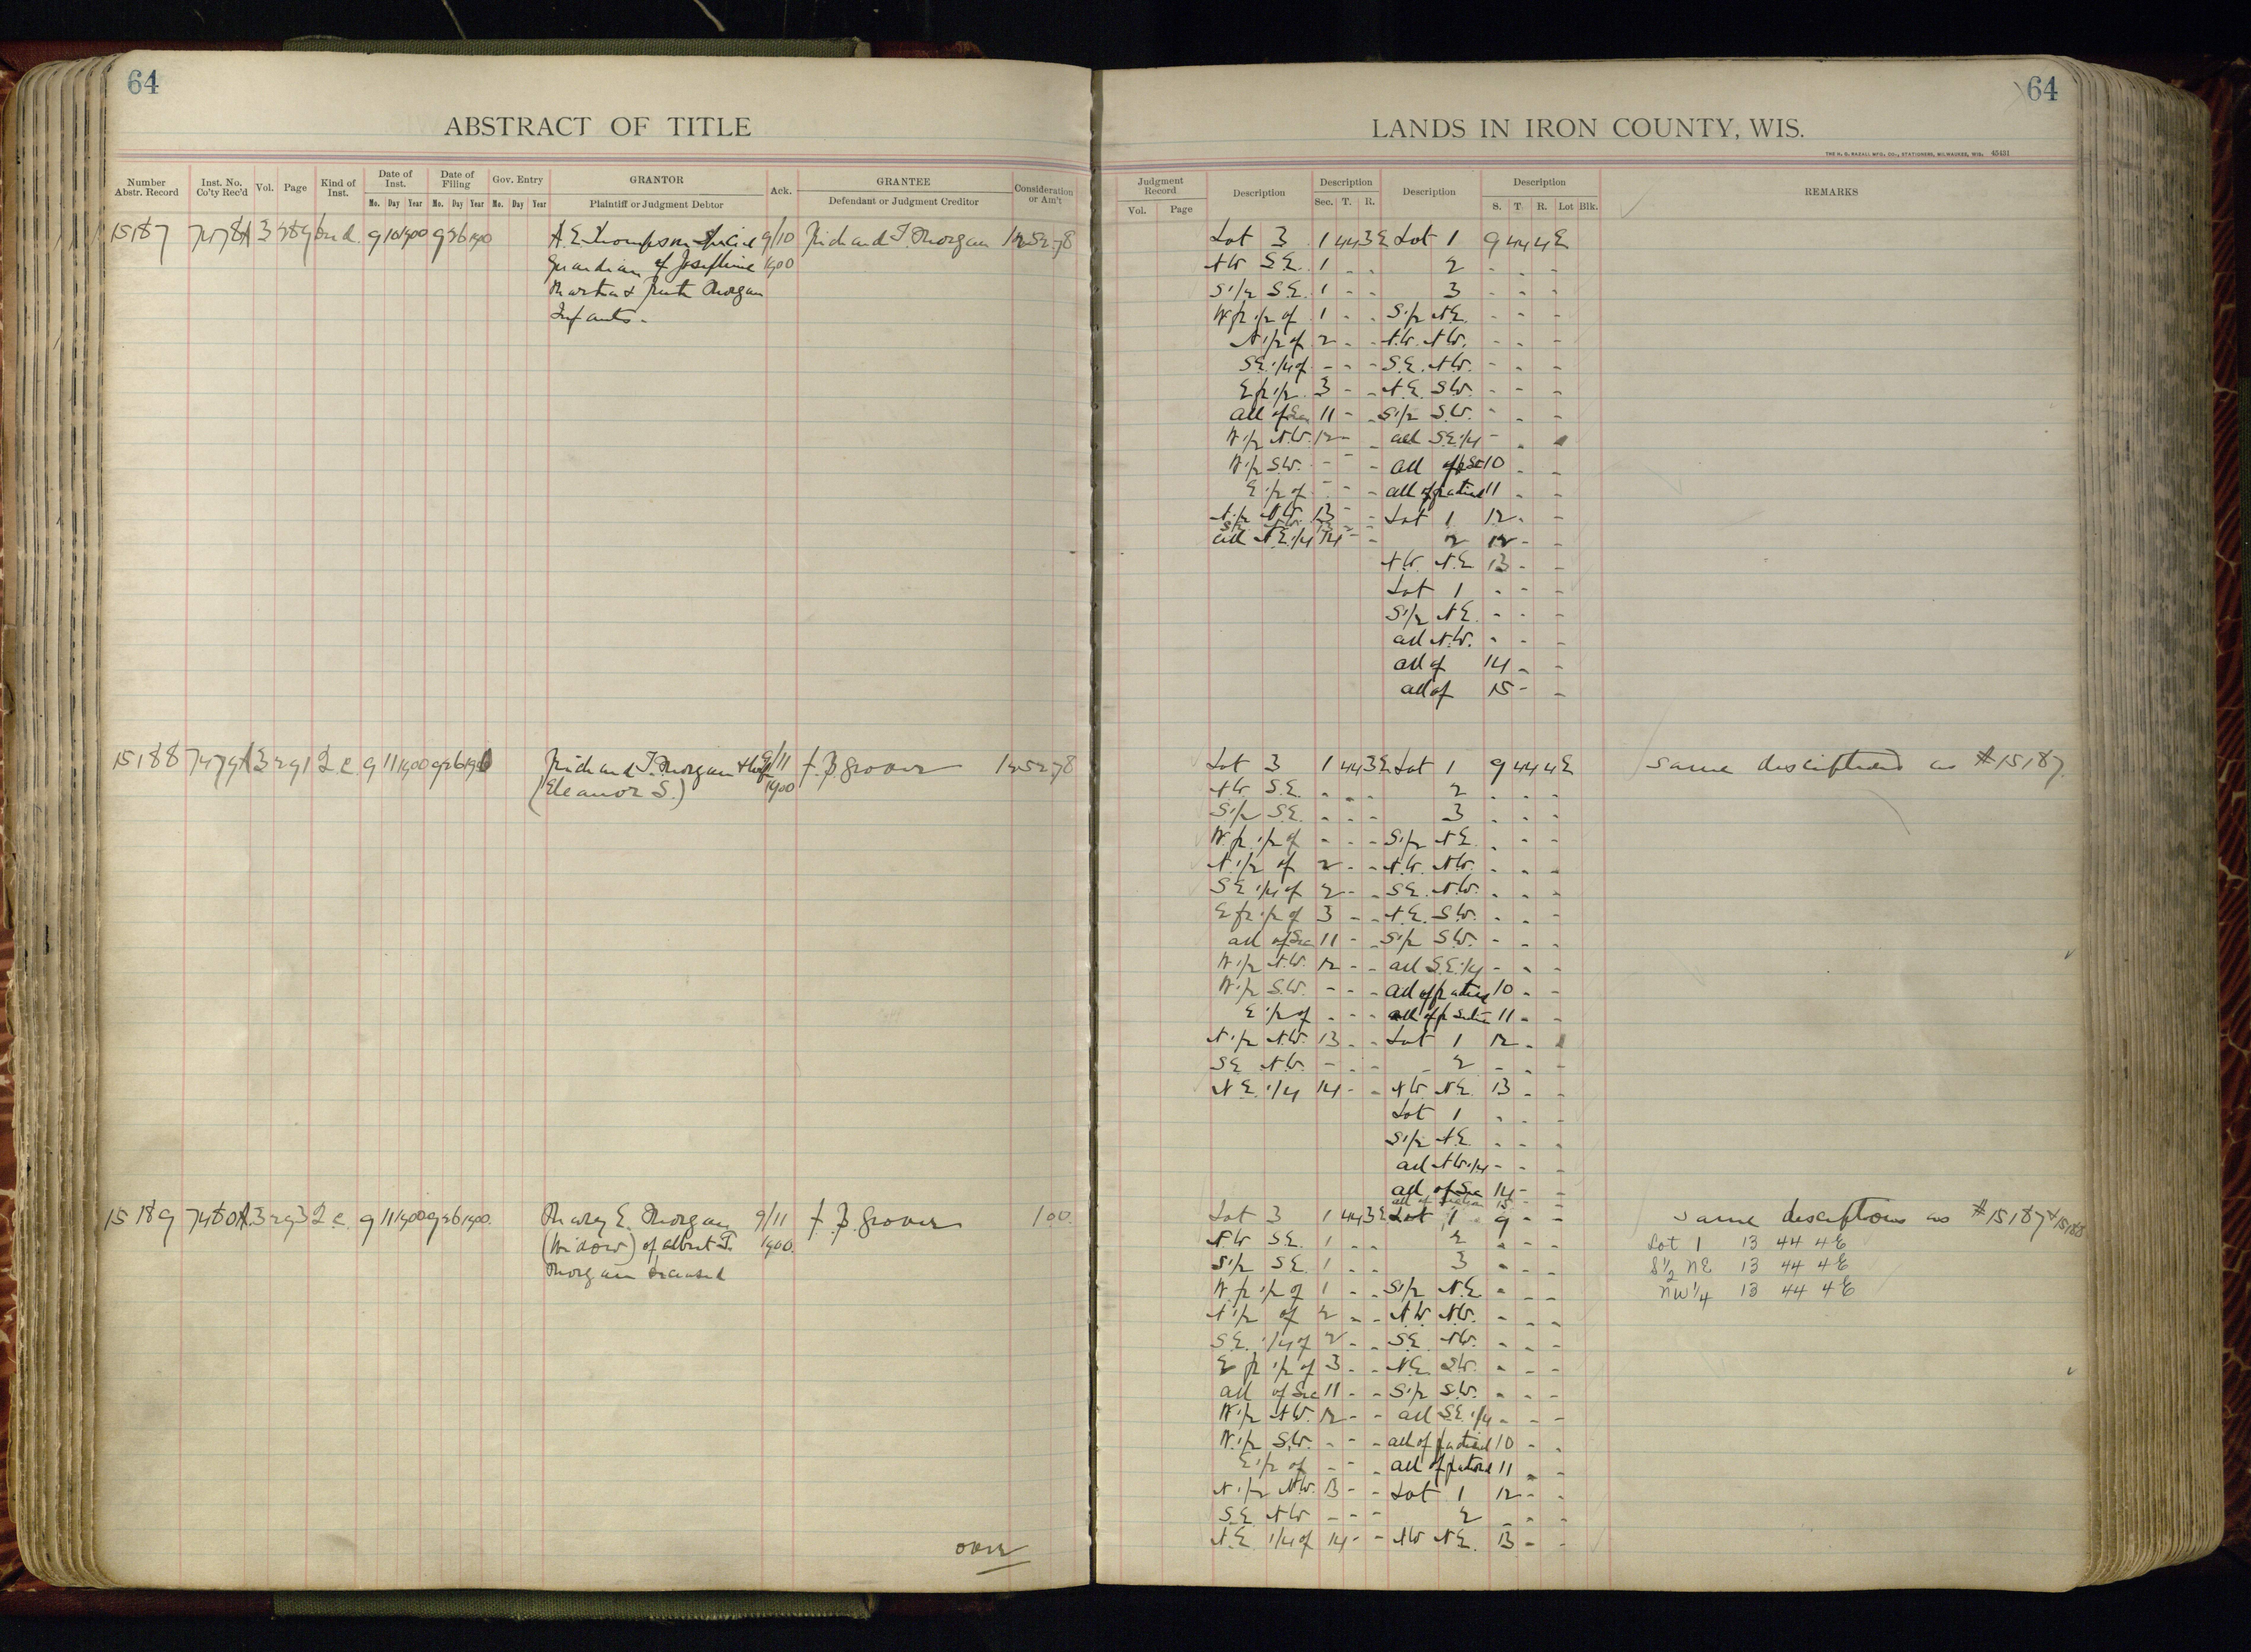 64
ABSTRACT OF TITLE
Number Abstr. Record Inst. No. Co'ty Rec'd Vol. Page Kind of Inst. Date of Inst. Date of Filing Gov. Entry GRANTOR Ack. GRANTEE Consideration or Am't
Mo. Day Year Mo. Day Year Mo. Day Year Plaintiff or Judgment Debtor Defendant or Judgment Creditor
15187 7478 A 3 289 9 10 1900 9 26 1900 A. E. Thompson Special 9/10 Richard T. Morgan 1252.78
Guardian of Josephine 1900
Martin & Ruth Morgan
Infants.
15188 7479 A 3 291 Q.C. 9 11 1900 9 26 1900 Richard T. Morgan & wife 9/11 F. P. Grover 1252.78
(Eleanor S.) 1900
15189 7480 A 3 293 Q.C. 9 11 1900 9 26 1900 Mary E. Morgan 9/11 F. P. Grover 1.00
(Widow) of Albert T. 1900
Morgan deceased
over
64
LANDS IN IRON COUNTY, WIS.
THE H. G. RAZALL MFG. CO., STATIONERS, MILWAUKEE, WIS. 45431
Judgment Record Description Description Description Description REMARKS
Vol. Page Sec. T. R. S. T. R. Lot Blk.
Lot 3 1 44 3E Lot 1 9 44 4E
NW SE. 1 - - 2 - - -
S 1/2 S.E. 1 - - 3 - - -
W fr 1/2 of 1 - - S 1/2 NE. - - -
N 1/2 of 2 - - N.W. NW. - - -
SE 1/4 of - - - S.E. NW. - - -
E fr 1/2 3 - - N.E. SW. - - -
all of Sec 11 - - S 1/2 S.W. - - -
W 1/2 N.W. 12 - - all S.E. 1/4 - - -
W 1/2 S.W. - - - all of 10 - -
E 1/2 of - - - all of fractional 11 - -
N 1/2 NW. 13 - - Lot 1 12 - -
SE NW. 13 - -
all N.E. 1/4 14 - - 2 12 - -
N.W. N.E 13 - -
Lot 1 - - -
S 1/2 NE. - - -
all N.W. - - -
all of 14 - -
all of 15 - -
Lot 3 1 44 3E Lot 1 9 44 4E same descriptions as #15187
NW S.E. - - - 2 - - -
S 1/2 S.E. - - - 3 - - -
W fr 1/2 of - - - S 1/2 NE. - - -
N 1/2 of 2 - - N.W. NW. - - -
SE 1/4 of 2 - - SE. NW. - - -
E fr 1/2 of 3 - - N.E. S.W. - - -
all of Sec 11 - - S 1/2 S.W. - - -
W 1/2 N.W. 12 - - all S.E. 1/4 - - -
W 1/2 S.W. - - - all of fractional 10 - -
E 1/2 of - - - all of fr Section 11 - -
N 1/2 N.W. 13 - - Lot 1 12 -
SE NW. - - - 2 - - -
N.E. 1/4 14 - - NW NE. 13 - -
Lot 1 - - -
S 1/2 NE. - - -
all NW 1/4 - - -
all of Sec 14 - -
all of Section 15 - -
Lot 3 1 44 3E Lot 1 9 - - same descriptions as #15187 & 15188
N.W SE. 1 - - 2 - - - Lot 1 13 44 4E
S 1/2 SE. 1 - - 3 - - - S 1/2 NE 13 44 4E
W fr 1/2 of 1 - - S 1/2 N.E. - - - NW 1/4 13 44 4E
N 1/2 of 2 - - N.W. NW. - - -
S.E. 1/4 of 2 - - S.E. NW. - - -
E fr 1/2 of 3 - - N.E. SW. - - -
all of Sec 11 - - S 1/2 S.W. - - -
W 1/2 NW. 12 - - all S.E. 1/4 - - -
W 1/2 S.W. - - - all of fractional 10 - -
E 1/2 of - - - all of fractional 11 - -
N 1/2 NW. 13 - - Lot 1 12 - -
S.E NW - - - 2 - - -
N.E. 1/4 of 14 - - NW N.E. 13 - -